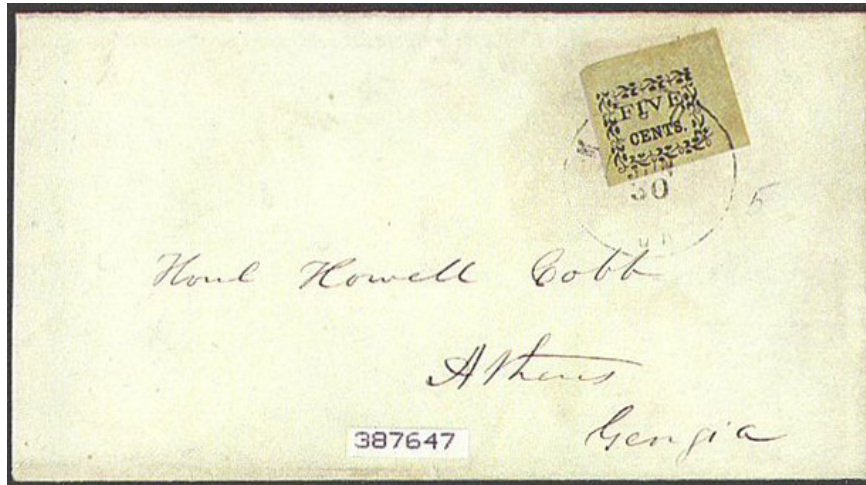 FIVE
CENTS.
JUN
30
5
Honl Howell Cobb
Athens
Georgia
387647